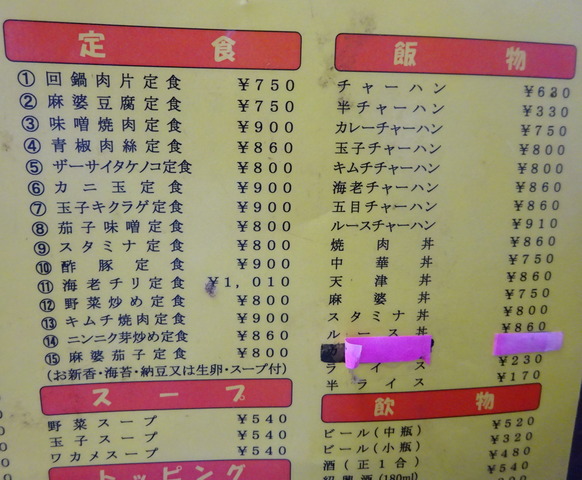 定食
① 回鍋肉片定食 ¥750
② 麻婆豆腐定食 ¥750
③ 味噌焼肉定食 ¥900
④ 青椒肉絲定食 ¥860
⑤ ザーサイタケノコ定食 ¥800
⑥ カニ玉定食 ¥900
⑦ 玉子キクラゲ定食 ¥900
⑧ 茄子味噌定食 ¥800
⑨ スタミナ定食 ¥800
⑩ 酢豚定食 ¥900
⑪ 海老チリ定食 ¥1,010
⑫ 野菜炒め定食 ¥800
⑬ キムチ焼肉定食 ¥900
⑭ ニンニク芽炒め定食 ¥800
⑮ 麻婆茄子定食 ¥800
(お新香・海苔・納豆又は生卵・スープ付)
スープ
野菜スープ ¥540
玉子スープ ¥540
ワカメスープ ¥540
トッピング
飯物
チャーハン ¥620
半チャーハン ¥330
カレーチャーハン ¥750
玉子チャーハン ¥800
キムチチャーハン ¥800
海老チャーハン ¥860
五目チャーハン ¥860
ルースチャーハン ¥910
焼肉丼 ¥860
中華丼 ¥750
天津丼 ¥860
麻婆丼 ¥750
スタミナ丼 ¥800
ルース丼 ¥860
ライス ¥230
半ライス ¥170
飲物
ビール(中瓶) ¥520
ビール(小瓶) ¥320
酒(正1合) ¥480
紹興酒(180ml) ¥540